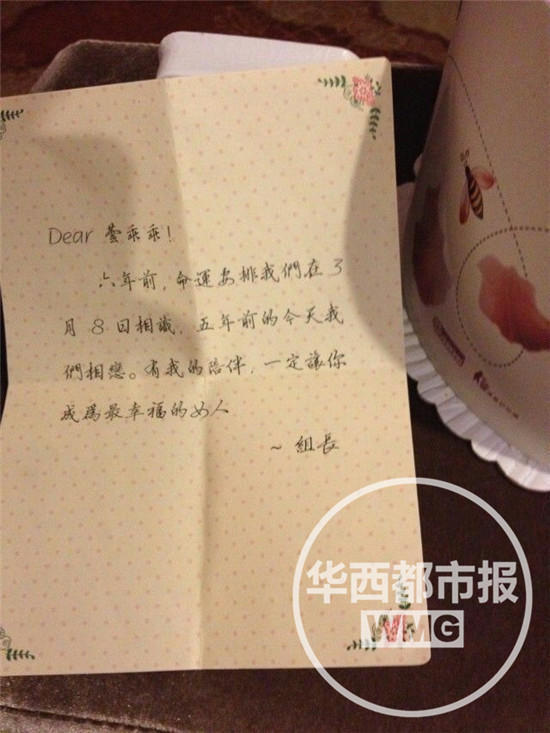 Dear 萱乖乖!
六年前,命運安排我們在3
月8日相識,五年前的今天我
們相戀。有我的陪伴,一定讓你
成為最幸福的女人
~ 組長
华西都市报
WMG